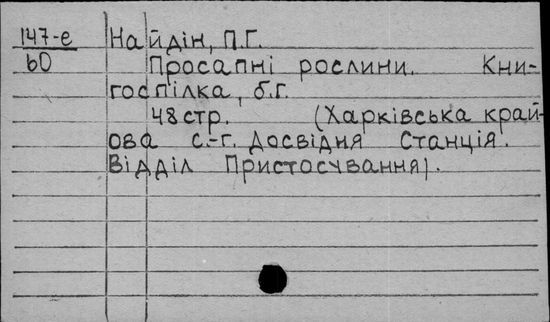 147-е Найдін, П.Г.
60 Просапні рослини. Кни-
госпілка, б.г.
48 стр. (Харківська край-
ова с.-г. Досвідня Станція.
Відділ Пристосування).